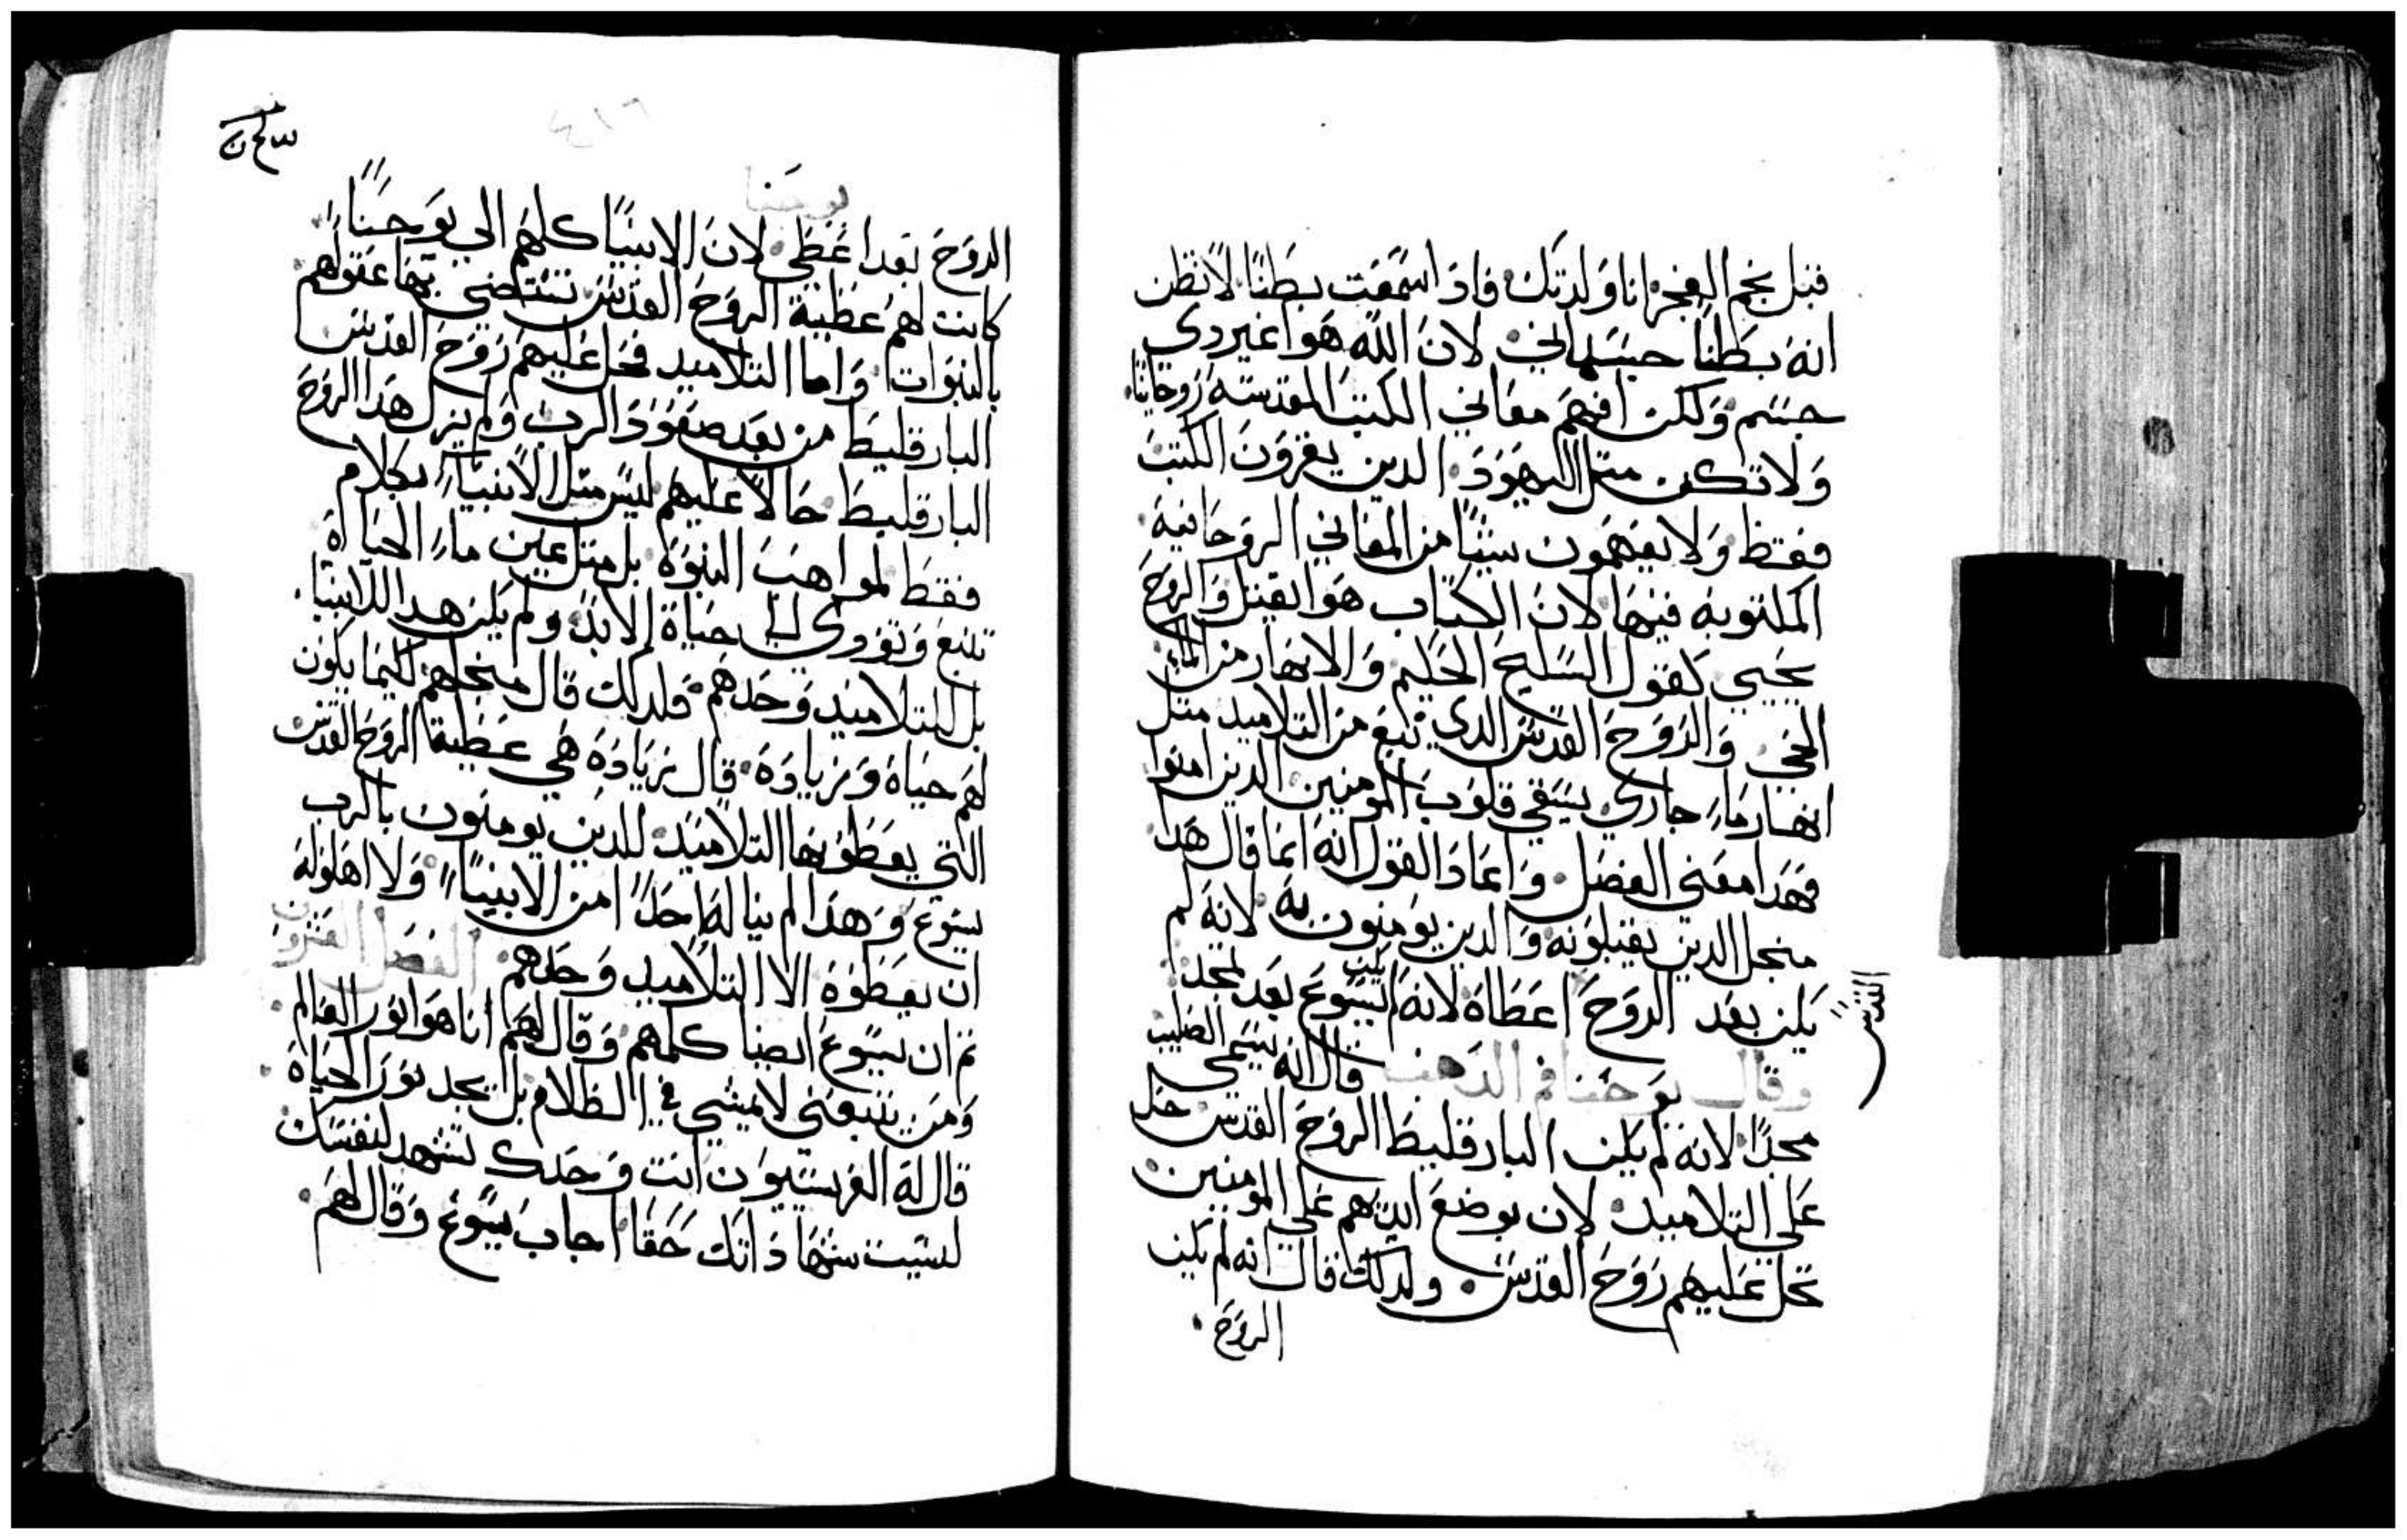 قبل نجم الفجر انا ولدتك فاذا سمعت بطنا لا تظن
انه بطنا جسداني لان الله هوا غير دي
جسم ولكن افهم معاني الكتب المقدسة روحانيا
ولا تكن متل اليهود الدين يقرون الكتب
فقط ولا يفهمون شيئا من المعاني الروحانية
المكتوبه فيها لان الكتاب هوا يقتل والروح
يحيي كقول السليح الحكيم والانهار من الما
الحي والروح القدس الدي نبع من التلاميد متل
انهار ماء جاري يسقي قلوب المومنين الدين امنوا
فهدا معني الفصل واعاد القول انه انما قال هدا
منجل الدين يقبلونه والدين يومنون به لانه لم
يكن بعد الروح اعطاه لانه لم يكن يسوع بعد تمجد
القدس
وقال يوحنا فم الدهب قال انه يسمي الصليب
مجدا لانه لم يكن البارقليط الروح القدس حل
علي التلاميد لان بوضع ايديهم علي المومنين
تحل عليهم روح القدس ولدلك قال انه لم يكن
الروح
يوحنا
الروح بعد اعطي لان الانبيا كلهم الي يوحنا
كانت لهم عطية الروح القدس تستضي بها عقولهم
بالنبوات واما التلاميد فحل عليهم روح القدس
البارقليط من بعد صعود الرب ولم يزل هدا الروح
البارقليط حالا عليهم ليس متل الانبياء بكلام
فقط لمواهب النبوة بل متل عين ماء الحياة
تنبع وتودي الي حياة الابد ولم يكن هدا للانبيا
بل للتلاميد وحدهم فلدلك قال منجلهم كيما يكون
لهم حياة وزيادة قال زيادة هي عطية الروح القدس
التي يعطونها التلاميد للدين يومنون بالرب
يسوع وهدا لم يناله احدا من الانبيا ولا اهلوله
ان يعطوة الا التلاميد وحدهم الفصل العشرون
تم ان يسوع ايضا كلمهم وقال لهم انا هوا نور العالم
ومن يتبعني لا يمشي في الظلام بل يجد نور الحياة
قال له الفريسيون انت وحدك تشهد لنفسك
ليست شهاداتك حقا اجاب يسوع وقال لهم